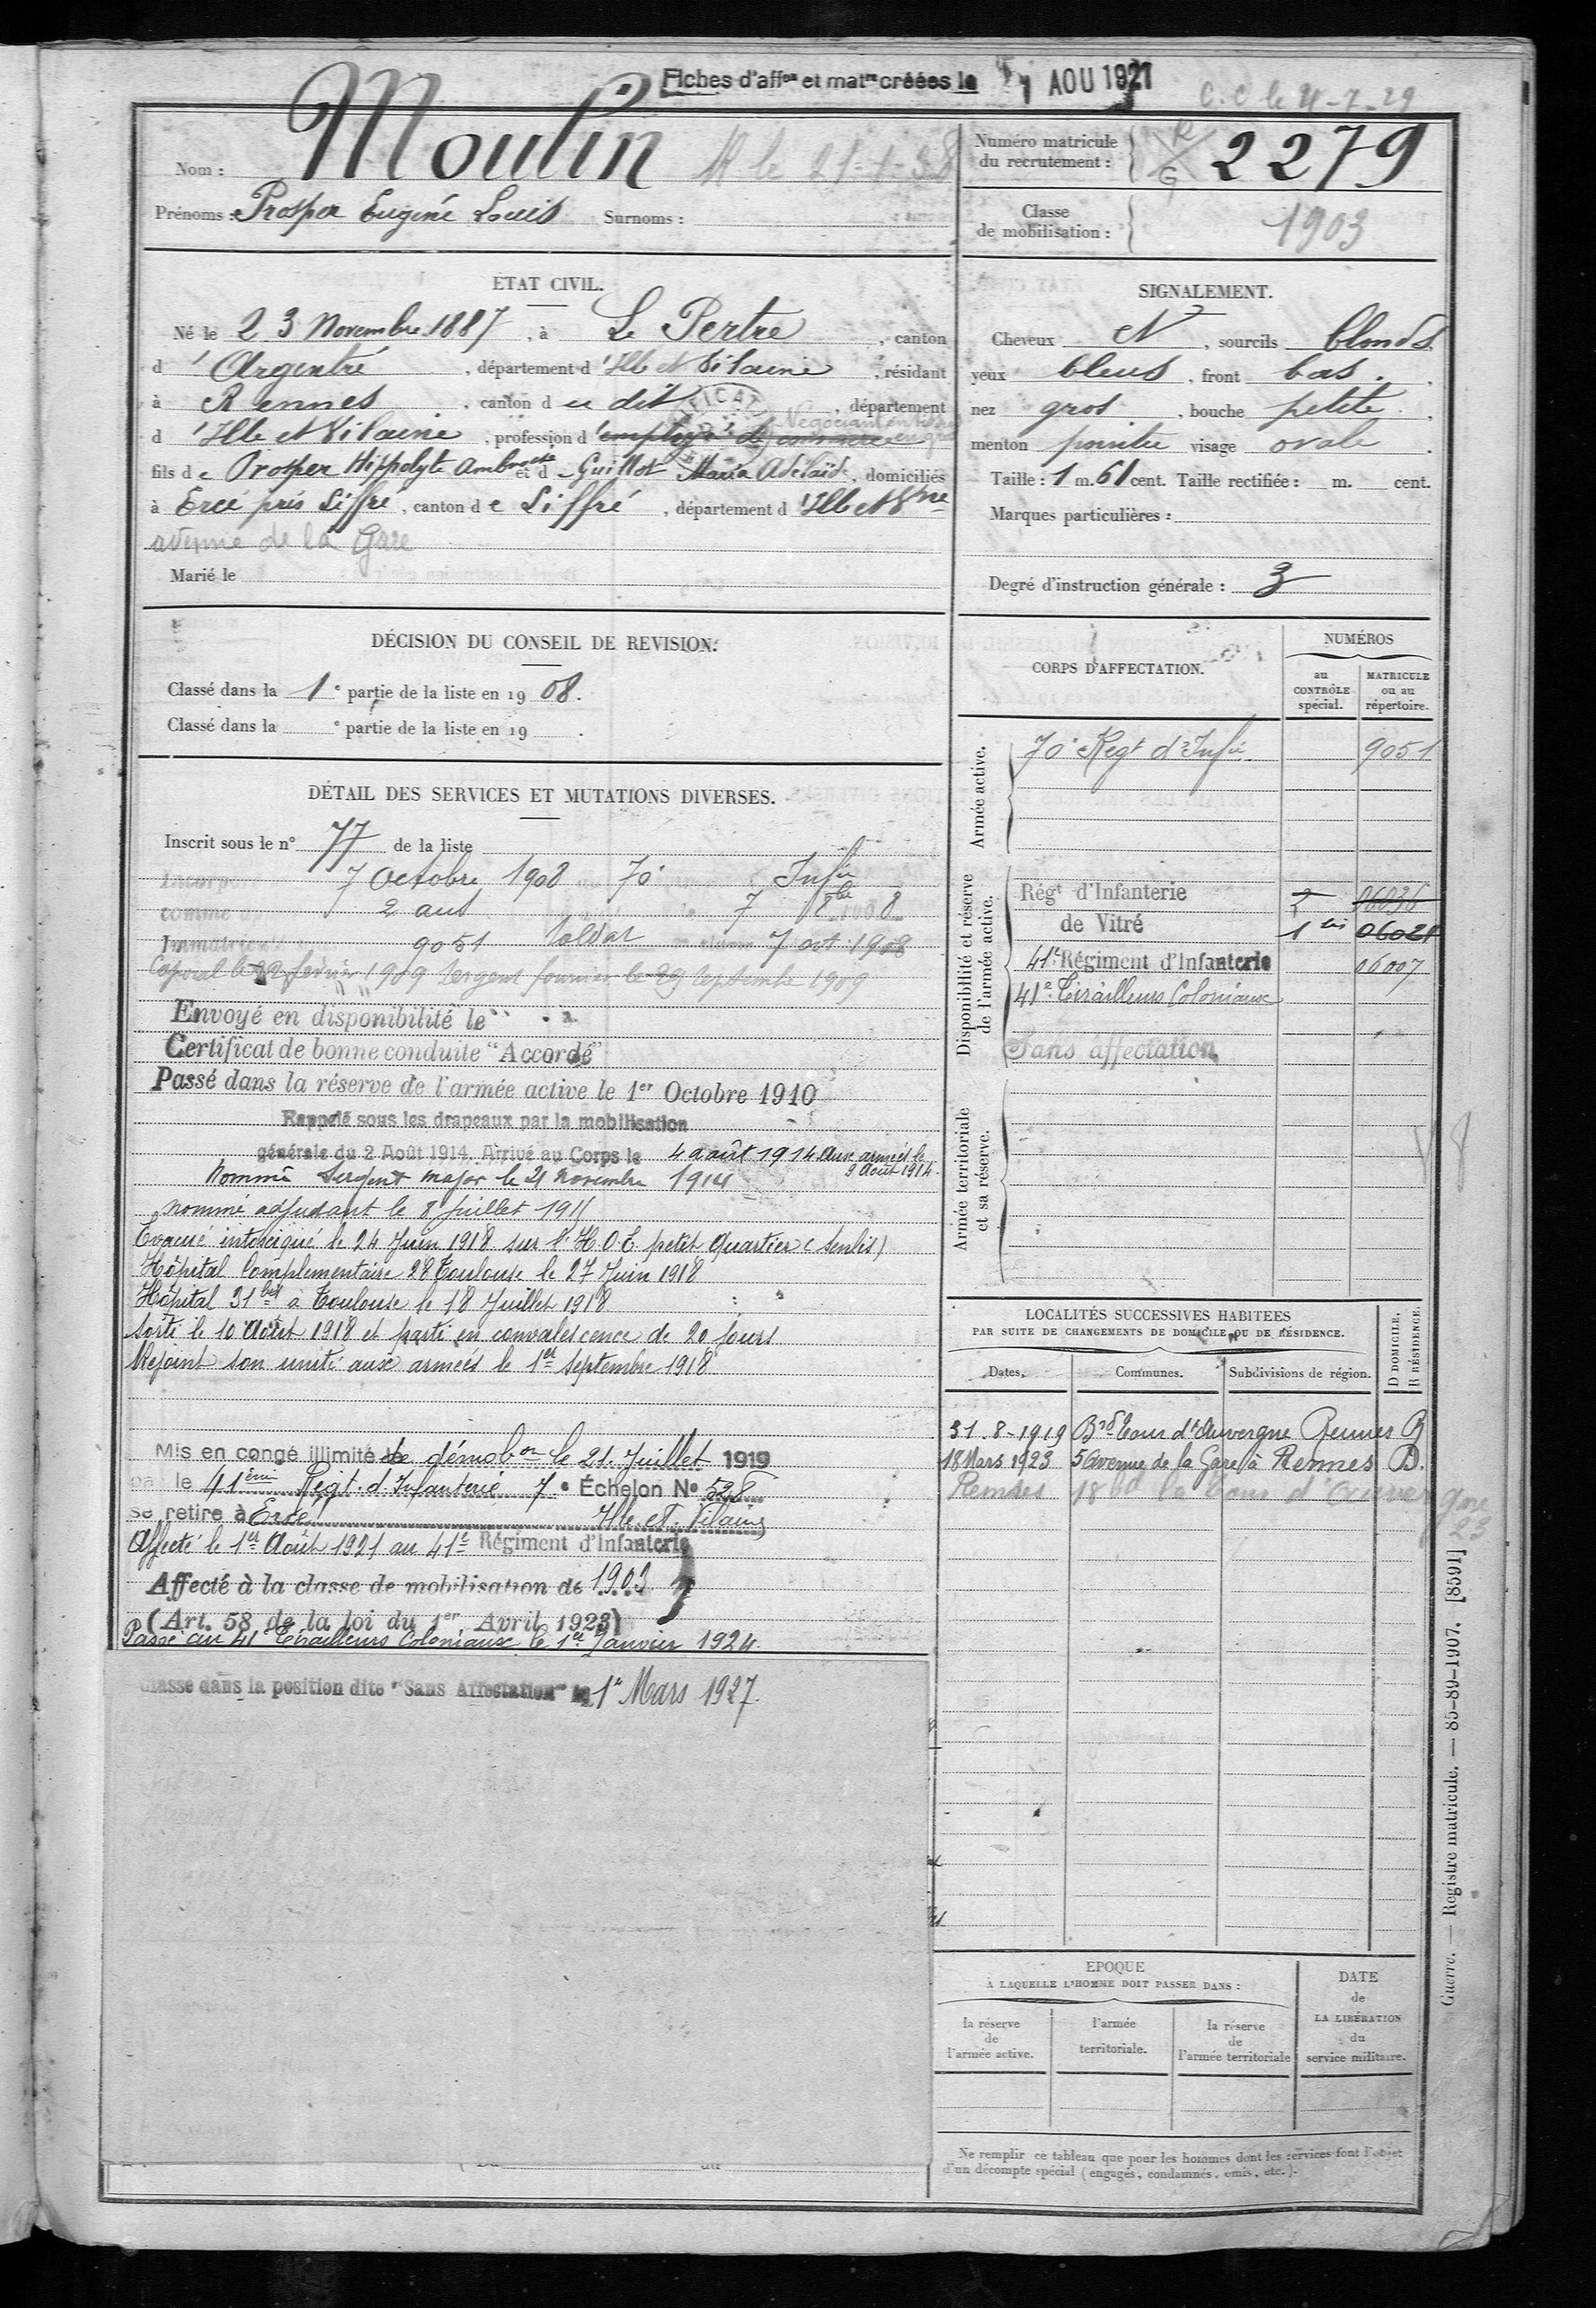 Fiches d'aff^on et mat^re créées le 1 AOU 1921
C.C le 4-7-29
Nom : Moulin
Prénoms : Prosper Eugène Louis Surnoms :
Numéro matricule du recrutement : 2279
R
G
Classe de mobilisation : 1903
ETAT CIVIL.
Né le 23 Novembre 1887, à Le Pertre, canton
d'Argentré, département d'Ille et Vilaine, résidant
à Rennes, canton du dit, département
Négociant en gros
d'Ille et Vilaine, profession d'employé de commerce
fils de Prosper Hippolyte Ambroise et de Guillot Maria Adelaïde, domiciliés
à Ercé près Liffré, canton de Liffré, département d'Ille et V^ne
avenue de la Gare
Marié le
SIGNALEMENT.
Cheveux N, sourcils blonds,
yeux bleus, front bas.,
nez gros, bouche petite,
menton pointu visage ovale
Taille : 1 m. 61 cent. Taille rectifiée : m. cent.
Marques particulières :
Degré d'instruction générale : 3
DÉCISION DU CONSEIL DE REVISION.
Classé dans la 1^e partie de la liste en 1908.
Classé dans la ^e partie de la liste en 19 .
DÉTAIL DES SERVICES ET MUTATIONS DIVERSES.
Inscrit sous le n° 77 de la liste
7 Octobre 1908 70 Inf^ie
comme 2 ans 7 8^bre 1908
Immatriculé 9051 soldat 7 oct 1908
Caporal le février 1909 Sergent fourrier le 29 septembre 1909
Envoyé en disponibilité le
Certificat de bonne conduite "Accordé"
Passé dans la réserve de l'armée active le 1er Octobre 1910
Rappelé sous les drapeaux par la mobilisation
générale du 2 Août 1914. Arrivé au Corps le 4 août 1914 aux armées le
9 Août 1914.
Nommé Sergent major le 21 novembre 1914
nommé adjudant le 8 juillet 1915
Evacué intoxiqué le 24 Juin 1918 sur l'H.O.E petit Quartier (Senlis)
Hôpital Complementaire 28 Toulouse le 27 Juin 1918
Hôpital 31^bis à Toulouse le 18 Juillet 1918
Sorti le 10 Août 1918 et parti en convalescence de 20 jours
Rejoint son unité aux armées le 1^er Septembre 1918
Mis en congé illimité de démob^on le 21 Juillet 1919
par le 41^ème Régt. d'Infanterie 7^e Échelon N° 528
se retire à Ercé Ille et Vilaine
Affecté le 1^er Août 1921 au 41^e Régiment d'Infanterie
Affecté à la classe de mobilisation de 1903
(Art. 58 de la loi du 1er Avril 1923)
Passé au 41^e Tirailleurs Coloniaux le 1^er Janvier 1924.
Classé dans la position dite "Sans Affectation" le 1^er Mars 1927.
CORPS D'AFFECTATION.
NUMÉROS
au CONTRÔLE spécial.
MATRICULE ou au répertoire.
Armée active.
70^e Reg^t d'Inf^ie 9051
Disponibilité et réserve de l'armée active.
Rég^t d'Infanterie 2 06036
de Vitré 1 bis 06021
41^e Régiment d'Infanterie 06007
41^e Tirailleurs Coloniaux
Sans affectation
Armée territoriale et sa réserve.
LOCALITÉS SUCCESSIVES HABITEES
PAR SUITE DE CHANGEMENTS DE DOMICILE OU DE RÉSIDENCE.
Dates. Communes. Subdivisions de région. D DOMICILE. R RÉSIDENCE.
31-8-1919 B^rd Tour d'Auvergne Rennes R
18 Mars 1923 5 Avenue de la Gare à Rennes D.
Rennes 18 bd la Tour d'Auvergne
23
EPOQUE
À LAQUELLE L'HOMME DOIT PASSER DANS :
la réserve de l'armée active.
l'armée territoriale.
la réserve de l'armée territoriale
DATE de LA LIBÉRATION du service militaire.
Ne remplir ce tableau que pour les hommes dont les services font l'objet
d'un décompte spécial (engagés, condamnés, omis, etc.).
Guerre. — Registre matricule. — 85-89-1907. [8591]